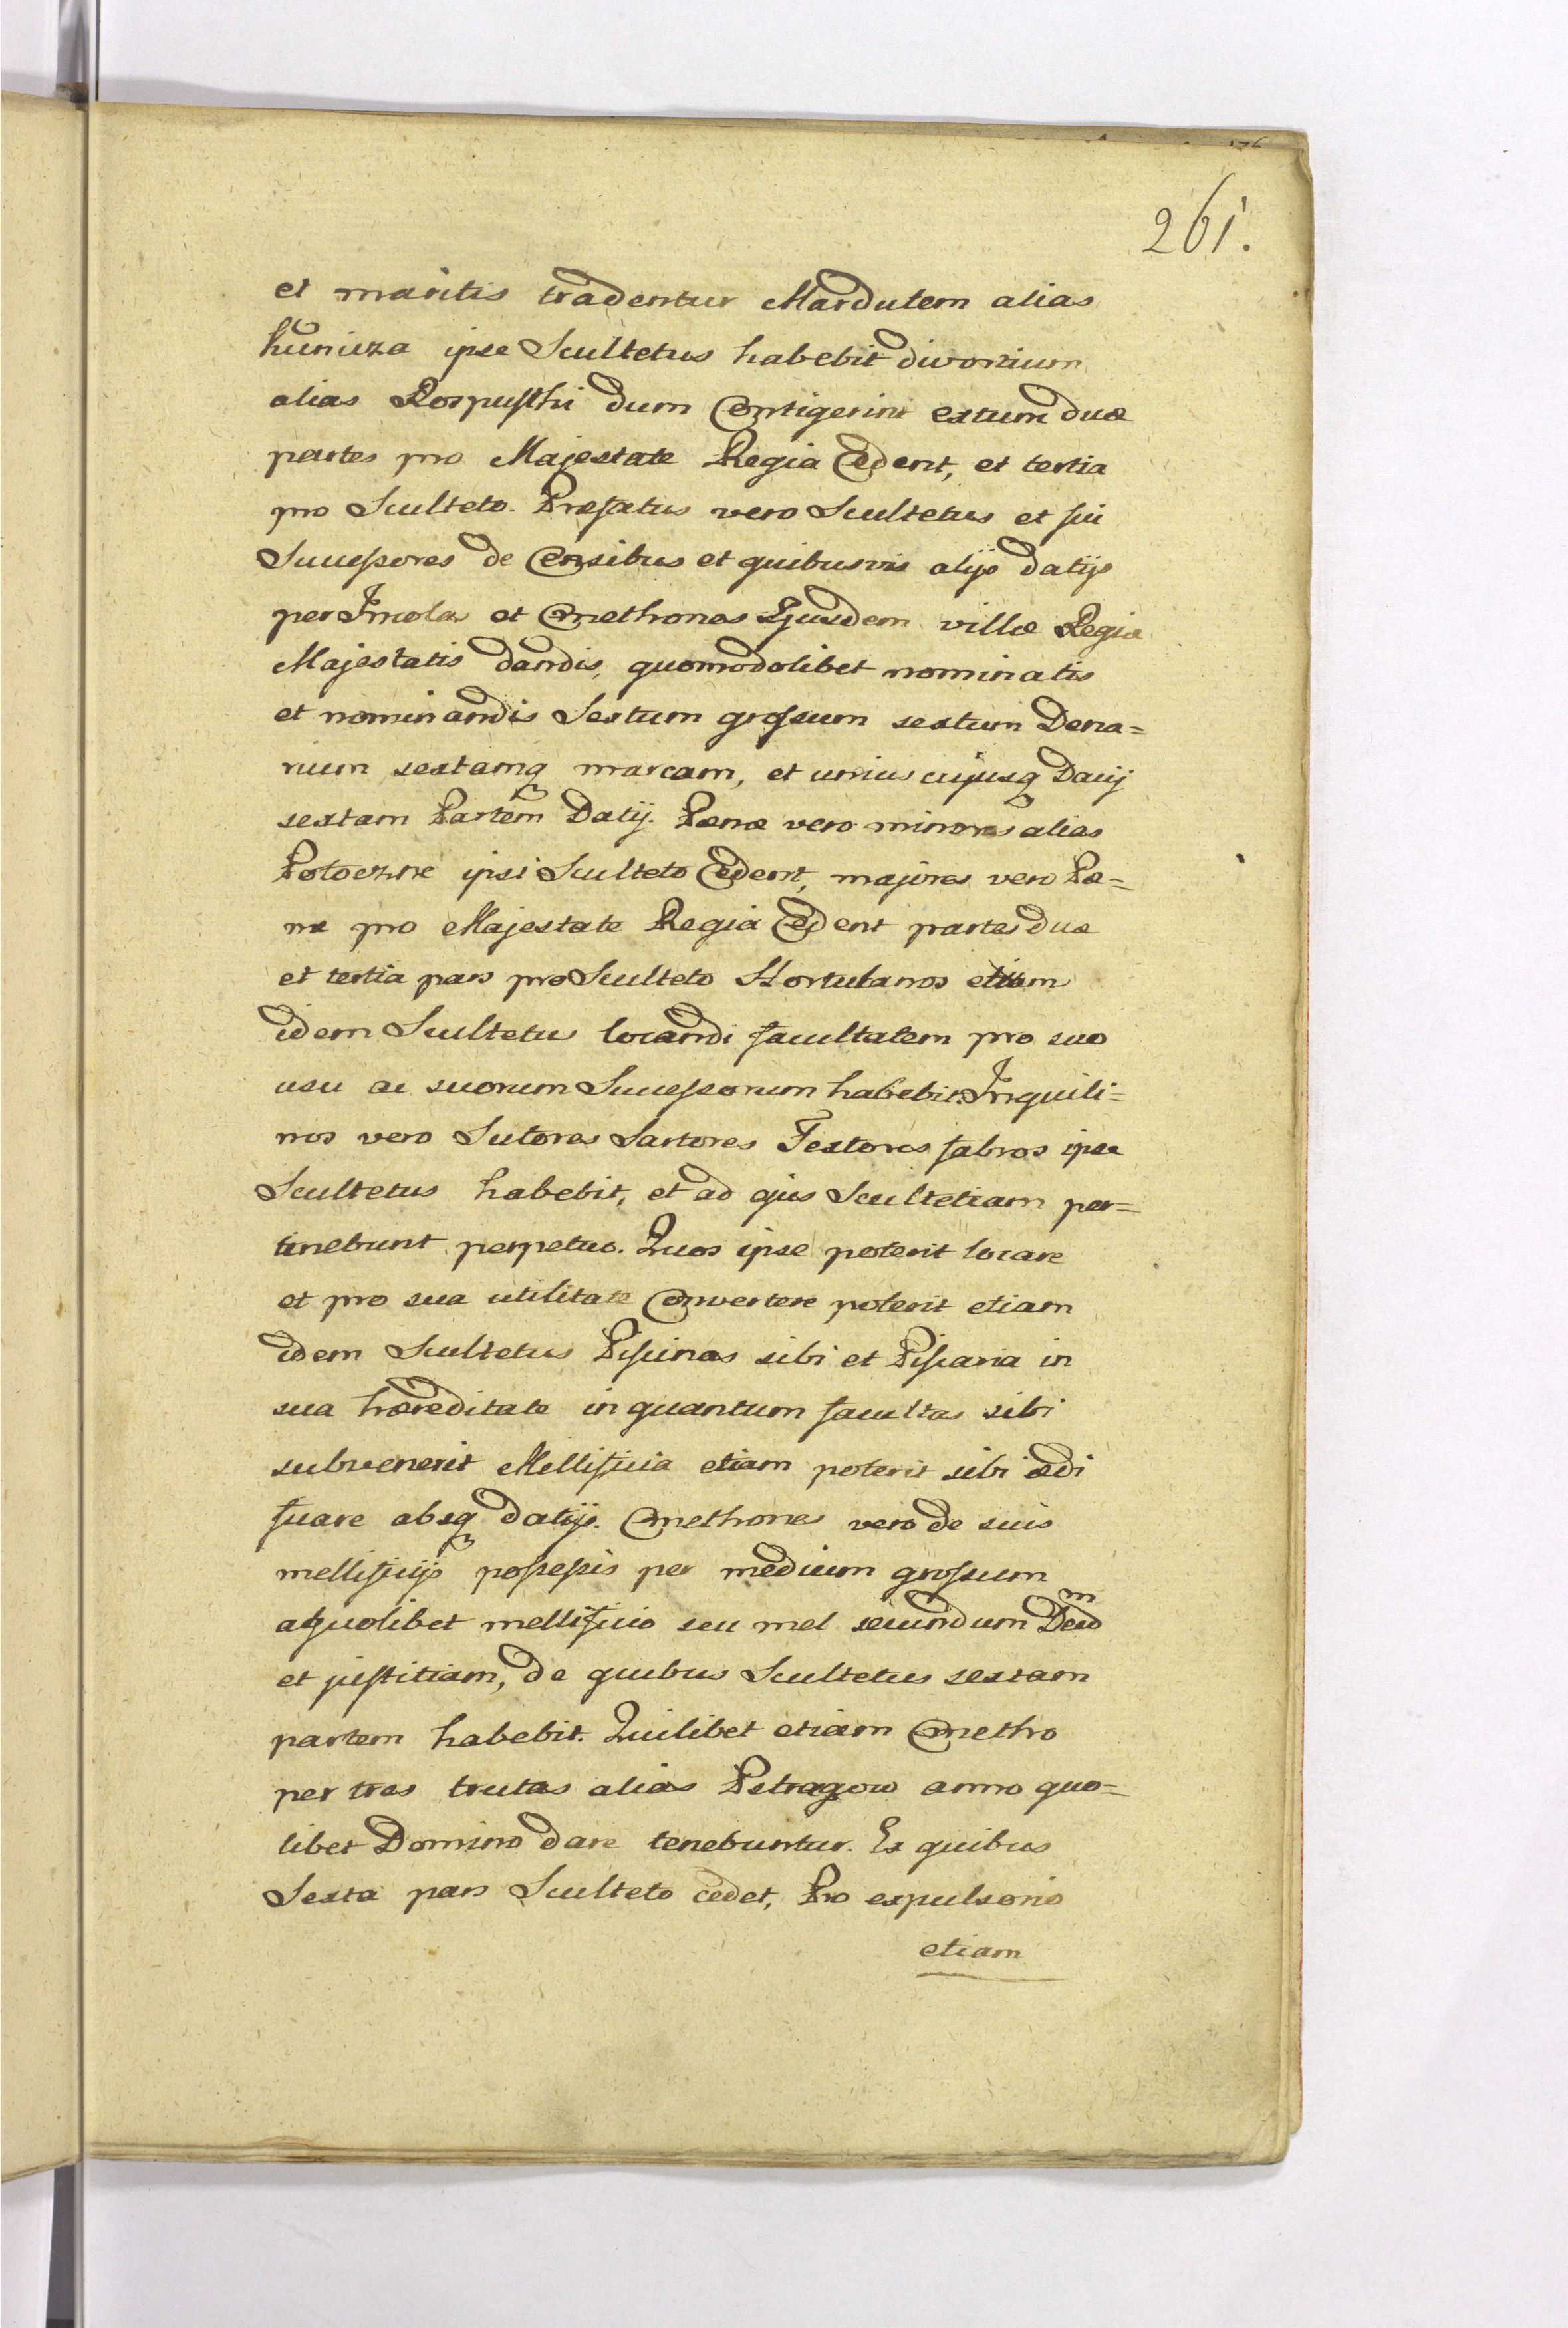 261.
et maritis tradentur Mardutem alias
kunicza ipse Scultetus habebit divortium
alias Rospusthi dum Contigerint extunc duæ
partes pro Majestate Regia Cedent, et tertia
pro Sculteto. Præfatus vero Scultetus et sui
Successores de Censibus et quibusvis alijs datijs
per Incolas et Cmethones Ejusdem villæ Regiæ
Majestatis dandis, quomodolibet nominatis
et nominandis Sextum grossum sextum Dena=
rium sextamq marcam, et unius cujusq Dacij
sextam Partem Datij. Pænæ vero minores alias
Potoczne ipsi Sculteto Cedent, majores vero Pæ=
næ pro Majestate Regia Cedent partes duæ
et tertia pars pro Sculteto Hortulanos etiam
idem Scultetus locandi facultatem pro suo
usu ac suorum Successorum habebit. Inquili=
nos vero Sutores Sartores Textores fabros ipse
Scultetus habebit, et ad ejus Scultetiam per=
tinebunt perpetuo. Quos ipse poterit locare
et pro sua utilitate Convertere poterit etiam
idem Scultetus Piscinas sibi et Piscaria in
sua hæreditate in quantum facultas sibi
subvenerit Mellificia etiam poterit sibi ædi
ficare absq datijs. Cmethones vero de suis
mellificijs possessis per medium grossum
a quolibet mellificio seu mel secundum Deum
et justitiam, de quibus Scultetus sextam
partem habebit. Quilibet etiam Cmetho
per tres trutas alias Pstragow anno quo=
libet Domino dare tenebuntur. Ex quibus
Sexta pars Sculteto cedet, Pro expulsorio
etiam